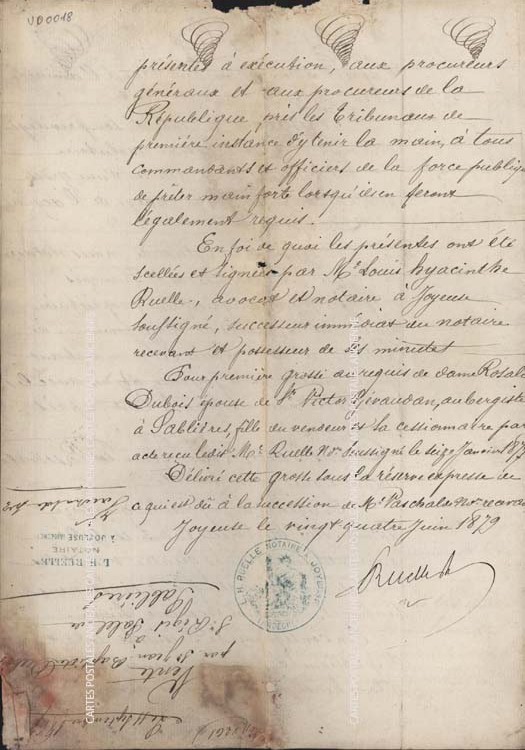 VD0018
présentes à exécution, aux procureurs
généraux et aux procureurs de la
République près les Tribunaux de
première instance d'y tenir la main, à tous
commandants et officiers de la force publique
de prêter main forte lorsqu'ils en seront
légalement requis.
En foi de quoi les présentes ont été
scellées et signées par Me Louis hyacinthe
Ruelle, avocat et notaire à Joyeuse
soussigné, successeur immédiat du notaire
recevant et possesseur de ses minutes
Pour première grosse au requis de dame Rosalie
Dubois épouse de Sr Victor Gévaudan, aubergiste
à Sablières, fille du vendeur et sa cessionnaire par
acte reçu ledit Me Ruelle Nre soussigné le seize Janvier
Délivré cette grosse sous la réserve expresse de
ce qui est dû à la succession de Me Paschal Nre
Joyeuse le vingt quatre Juin 1879
Ruelle
L. H. RUELLE NOTAIRE A JOYEUSE
L. H. RUELLE
NOTAIRE
À JOYEUSE
Vente
par Jean Baptiste
St Régis
à
Sablières
CARTES POSTALES